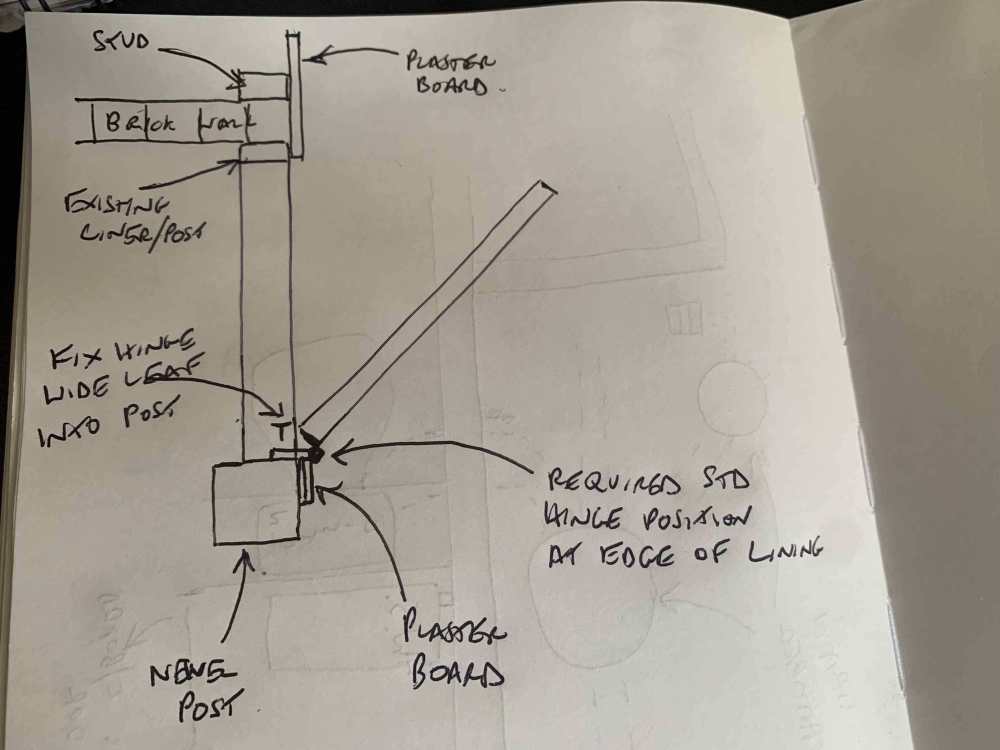 STUD
PLASTER
BOARD.
Brick Wall
EXISTING
LINER/POST
FIX HINGE
WIDE LEAF
INTO POST
T
REQUIRED STD
HINGE POSITION
AT EDGE OF LINING
PLASTER
BOARD
NEWEL
POST